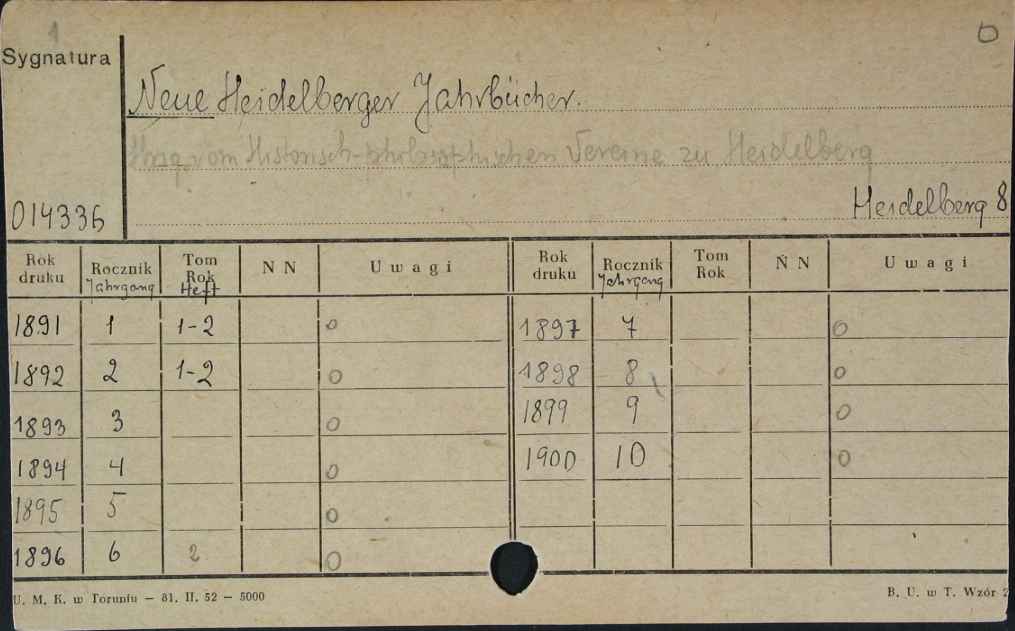 1
O
Sygnatura
Neue Heidelberger Jahrbücher.
Hrsg. vom Historisch-philosophischen Vereine zu Heidelberg
014336
Heidelberg 8
Rok druku Rocznik Jahrgang Tom Rok Heft NN Uwagi Rok druku Rocznik Jahrgang Tom Rok NN Uwagi
1891 1 1-2 o 1897 7 o
1892 2 1-2 o 1898 8 o
1893 3 o 1899 9 o
1894 4 o 1900 10 o
1895 5 o
1896 6 2 o
U. M. K. w Toruniu — 81. II. 52 — 5000
B. U. w T. Wzór 2